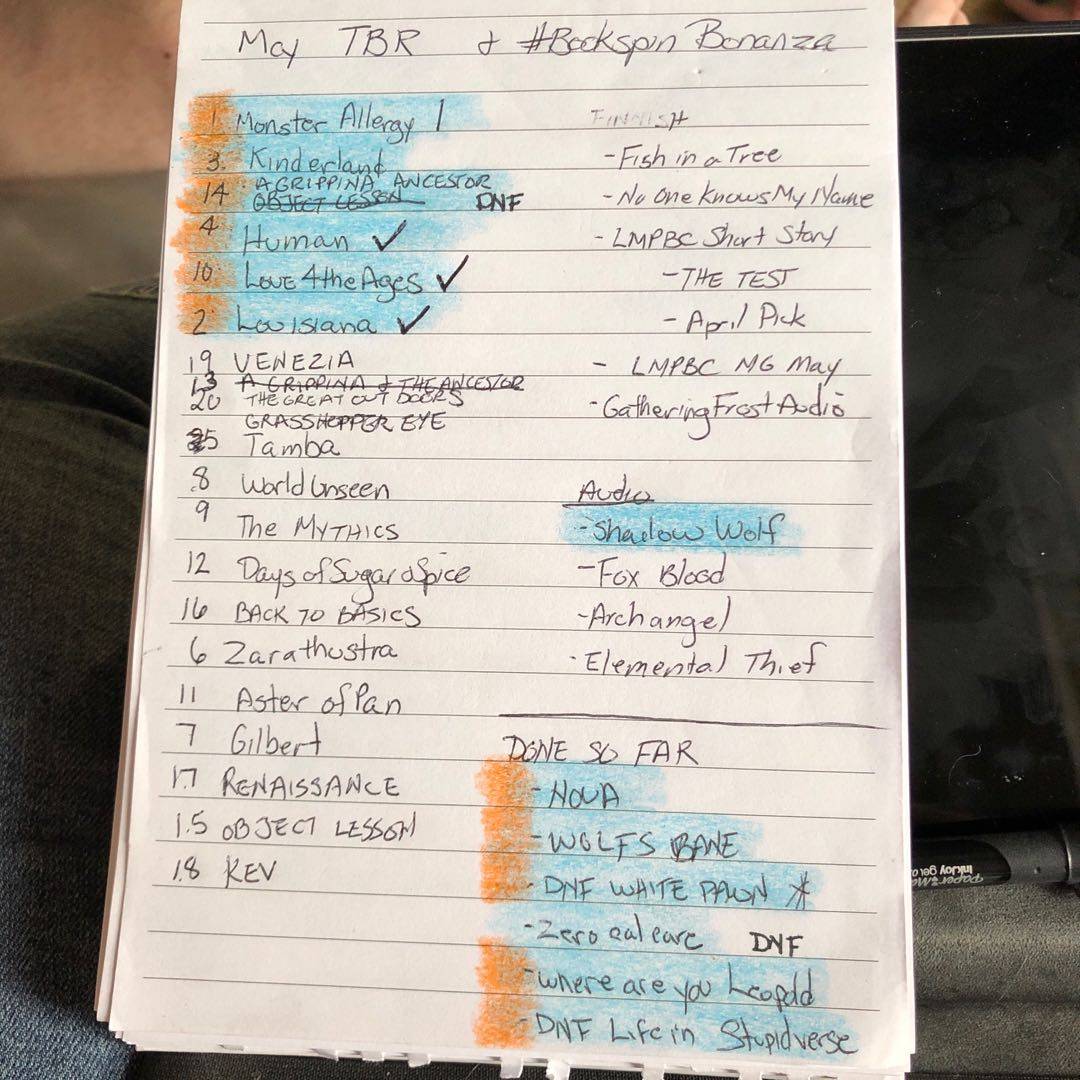 May TBR & #Bookspin Bonanza
1 Monster Allergy 1
3. Kinderland
14 AGRIPPINA ANCESTOR
OBJECT LESSON DNF
4 Human ✓
10 Love 4 the Ages ✓
2 Louisiana ✓
19 VENEZIA
13 AGRIPPINA & THE ANCESTOR
20 THE GREAT OUT DOORS
GRASSHOPPER EYE
5 Tamba
8 World Unseen
9 The MYTHICS
12 Days of Sugar & Spice
16 BACK TO BASICS
6 Zarathustra
11 Aster of Pan
7 Gilbert
17 RENAISSANCE
15 OBJECT LESSON
18 KEV
FINNISH
- Fish in a Tree
- No One Knows My Name
- LMPBC Short Story
- THE TEST
- April Pick
- LMPBC MG May
- Gathering Frost Audio
Audio
- Shadow Wolf
- Fox Blood
- Archangel
- Elemental Thief
DONE SO FAR
- NOVA
- WOLFS BANE
- DNF WHITE PAWN *
- Zero cal care DNF
- where are you Leopold
- DNF Life in Stupidverse
Paper Mate
InkJoy gel